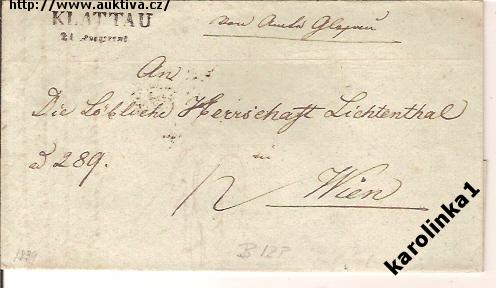 http://www.auktiva.cz/
KLATTAU
21
von Amte
An
Die Löbliche Herrschaft Lichtenthal
ad 289.
in
12 Wien
B 12P
karolinka1